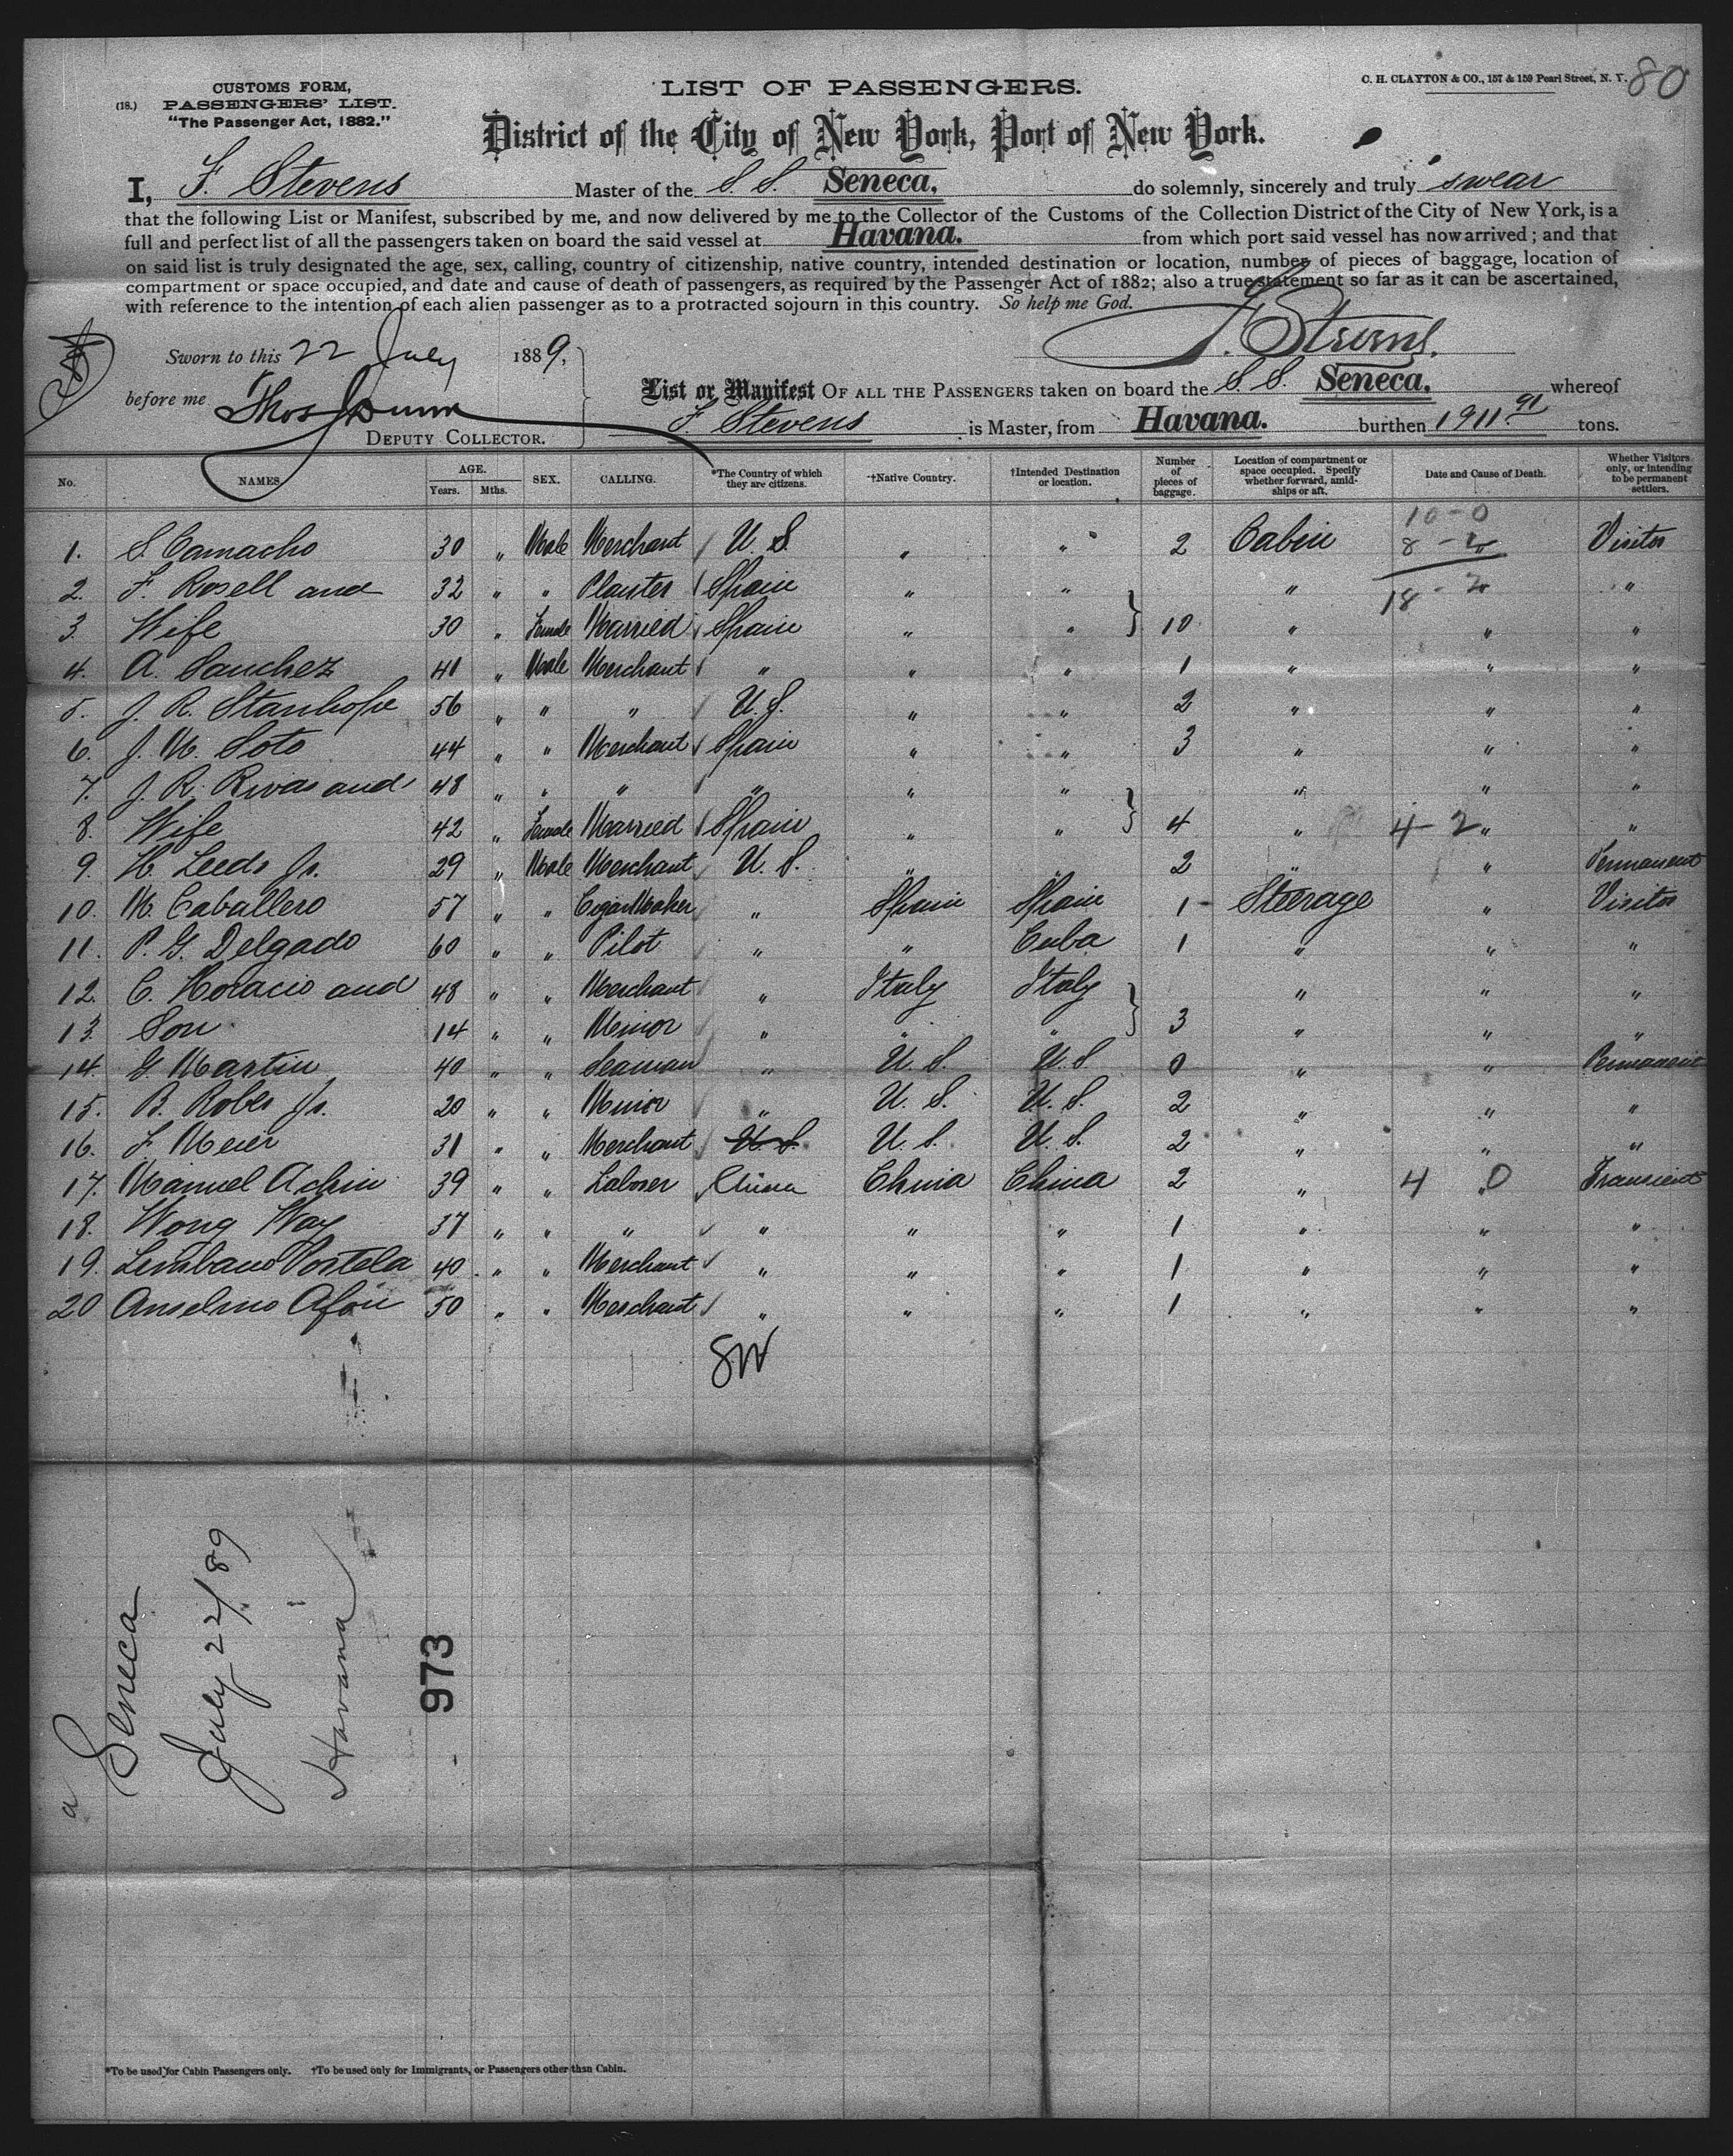 80
CUSTOMS FORM,
(18.) PASSENGERS' LIST.
"The Passenger Act, 1882."
LIST OF PASSENGERS.
C. H. CLAYTON & CO., 157 & 159 Pearl Street, N. Y.
District of the City of New York, Port of New York.
I, F. Stevens Master of the S. S. Seneca, do solemnly, sincerely and truly swear
that the following List or Manifest, subscribed by me, and now delivered by me to the Collector of the Customs of the Collection District of the City of New York, is a
full and perfect list of all the passengers taken on board the said vessel at Havana. from which port said vessel has now arrived; and that
on said list is truly designated the age, sex, calling, country of citizenship, native country, intended destination or location, number of pieces of baggage, location of
compartment or space occupied, and date and cause of death of passengers, as required by the Passenger Act of 1882; also a true statement so far as it can be ascertained,
with reference to the intention of each alien passenger as to a protracted sojourn in this country. So help me God.
F. Stevens.
Sworn to this 22 July 1889,
before me Thos Dunn
DEPUTY COLLECTOR.
List or Manifest OF ALL THE PASSENGERS taken on board the S. S. Seneca. whereof
F. Stevens is Master, from Havana. burthen 1911.91 tons.
No. NAMES AGE. Years. Mths. SEX. CALLING. *The Country of which they are citizens. †Native Country. †Intended Destination or location. Number of pieces of baggage. Location of compartment or space occupied. Specify whether forward, amidships or aft. Date and Cause of Death. Whether Visitors only, or intending to be permanent settlers.
10-0
1. S. Camacho 30 " Male Merchant U. S. " " 2 Cabin 8 - 2 Visitor
2. F. Rosell and 32 " " Planter Spain " " " 18 - 2 "
3. Wife 30 " Female Married Spain " " 10 " " "
4. A. Sanchez 41 " Male Merchant " " " 1 " " "
5. J. R. Stanhope 56 " " " U. S. " " 2 " " "
6. J. M. Soto 44 " " Merchant Spain " " 3 " " "
7. J. R. Rivas and 48 " " " " " " " " "
8. Wife 42 " Female Married Spain " " 4 " 4-2 " "
9. H. Leeds Jr. 29 " Male Merchant U. S. " " 2 " " Permanent
10. M. Caballero 57 " " Cigar Maker " Spain Spain 1 - Steerage " Visitor
11. P. G. Delgado 60 " " Pilot " " Cuba 1 " " "
12. C. Horacio and 48 " " Merchant " Italy Italy " " "
13. Son 14 " " Minor " " " 3 " " "
14. G. Martin 40 " " Seaman " U. S. U. S. 0 " " Permanent
15. B. Robes Jr. 20 " " Minor " U. S. U. S. 2 " " "
16. F. Meier 31 " " Merchant U. S. U. S. U. S. 2 " " "
17. Manuel Achin 39 " " Laborer China China China 2 " 4 " 0 Transient
18. Wong Way 37 " " " " " " 1 " " "
19. Portela 40 " " Merchant " " " 1 " " "
20 Anselmo Afon 50 " " Merchant " " " 1 " " "
a
Seneca
July 22/89
Havana
973
*To be used for Cabin Passengers only. †To be used only for Immigrants, or Passengers other than Cabin.